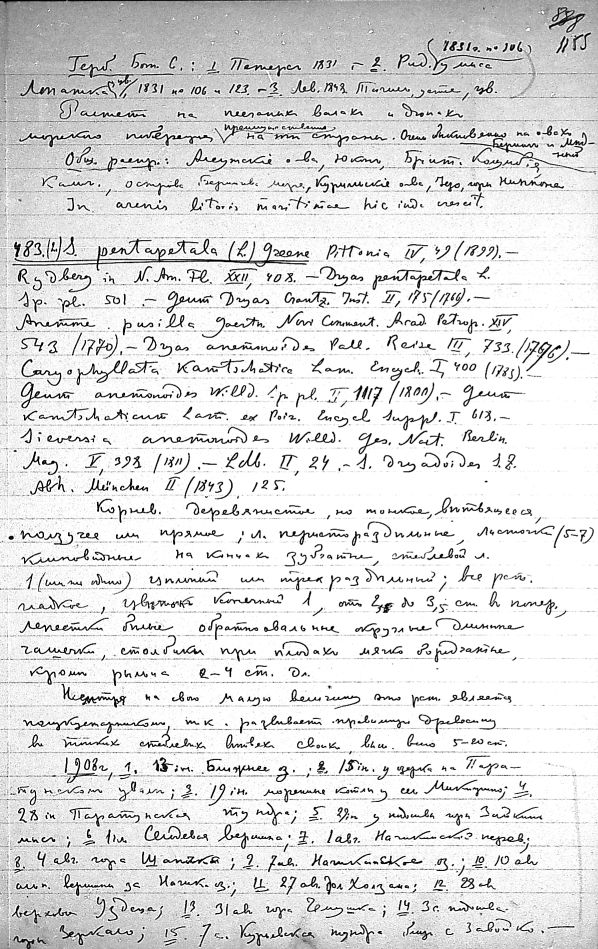 1155
(1831 г. no 106)
Герб. Бот. С.: 1 Петерс 1831 – 2. Рид. мыса
Лопатка 1831 no 106 и 123, – 3 Лев. 1848 Тигиль, устье, цв.
Растет на песчаных валах и дюнах
преимущественно
морского побережья
Общ. распр.: Алеутские о-ва, Юкон, Брит. Колумбія,
Камч., острова Берингова моря, Курильскіе о-ва, Iезо, горы Ниппона
In arenis litoris maritimae hic inde crescit.
483.(2) S. pentapetala (L.) Greene Pittonia IV, 49 (1899). –
Rydberg in N. Am. Fl. XXII, 408. – Dryas pentapetala L.
Sp. pl. 501 – Geum Dryas Crantz. Inst. II, 175 (1766). –
Anemone pusilla Gaertn. Novi Comment. Acad Petrop. XIV,
543 (1770). – Dryas anemonoides Pall. Reise III, 733. (1776). –
Caryophyllata Kamtschatica Lam. Encycl. I, 400 (1783). –
Geum anemonoides Willd. Sp. pl. II, 1117 (1800). – Geum
Kamtschaticum Lam. ex Poir. Encycl Suppl. I 618. –
Sieversia anemonoides Willd. Ges. Nat. Berlin.
Mag. V, 398 (1811). – Ldb. II, 24. – S. Dryadoides S. Z.
Abh. München II (1843), 125.
Корнев. деревянистое, но тонкое, ветвящееся,
ползучее или прямое; л. перистораздельные, листочки (5–7)
клиновидные на концах зубчатые, стеблевой л.
1 (или ни одного) цельный или трехраздельный; все раст.
гладкое, цветок конечный 1, от 2,5 до 3,5 ст. в попер.,
лепестки белые обратноовальные округлые длиннее
чашечки, столбики при плодах мягко бородчатые,
кроме рыльца 2–4 ст. дл.
Несмотря на свою малую величину это раст. является
полукустарником, т. к. развивает правильную древесину
в тонких стеблевых ветвях своих, выш. всего 5–20 ст.
1908 г, 1. 13 iн. Ближнее оз.; 2. 15 iн. у озерка на Пара-
тунском увале; 3. 19 iн. моренные котлы у сел Микижино; 4.
28 iн Паратунская тундра; 5. у подошвы горы Зайкин
мыс; 6 1 iл Сельдевая вершина; 7. 1 авг. Начикинский перев;
8. 4 авг. гора Шапка; 9. 7 ав. Начикинское оз.; 10 10 ав
альп. вершины за Начик. оз.; 11. 27 ав. дол. Холзана; 12. 28 ав
верховья Уздеца; 13. 31 ав гора Чемушка; 14. 3 с. подошва
горы Зеркало; 15 7 с. Курьевская тундра близ с Завойко. –